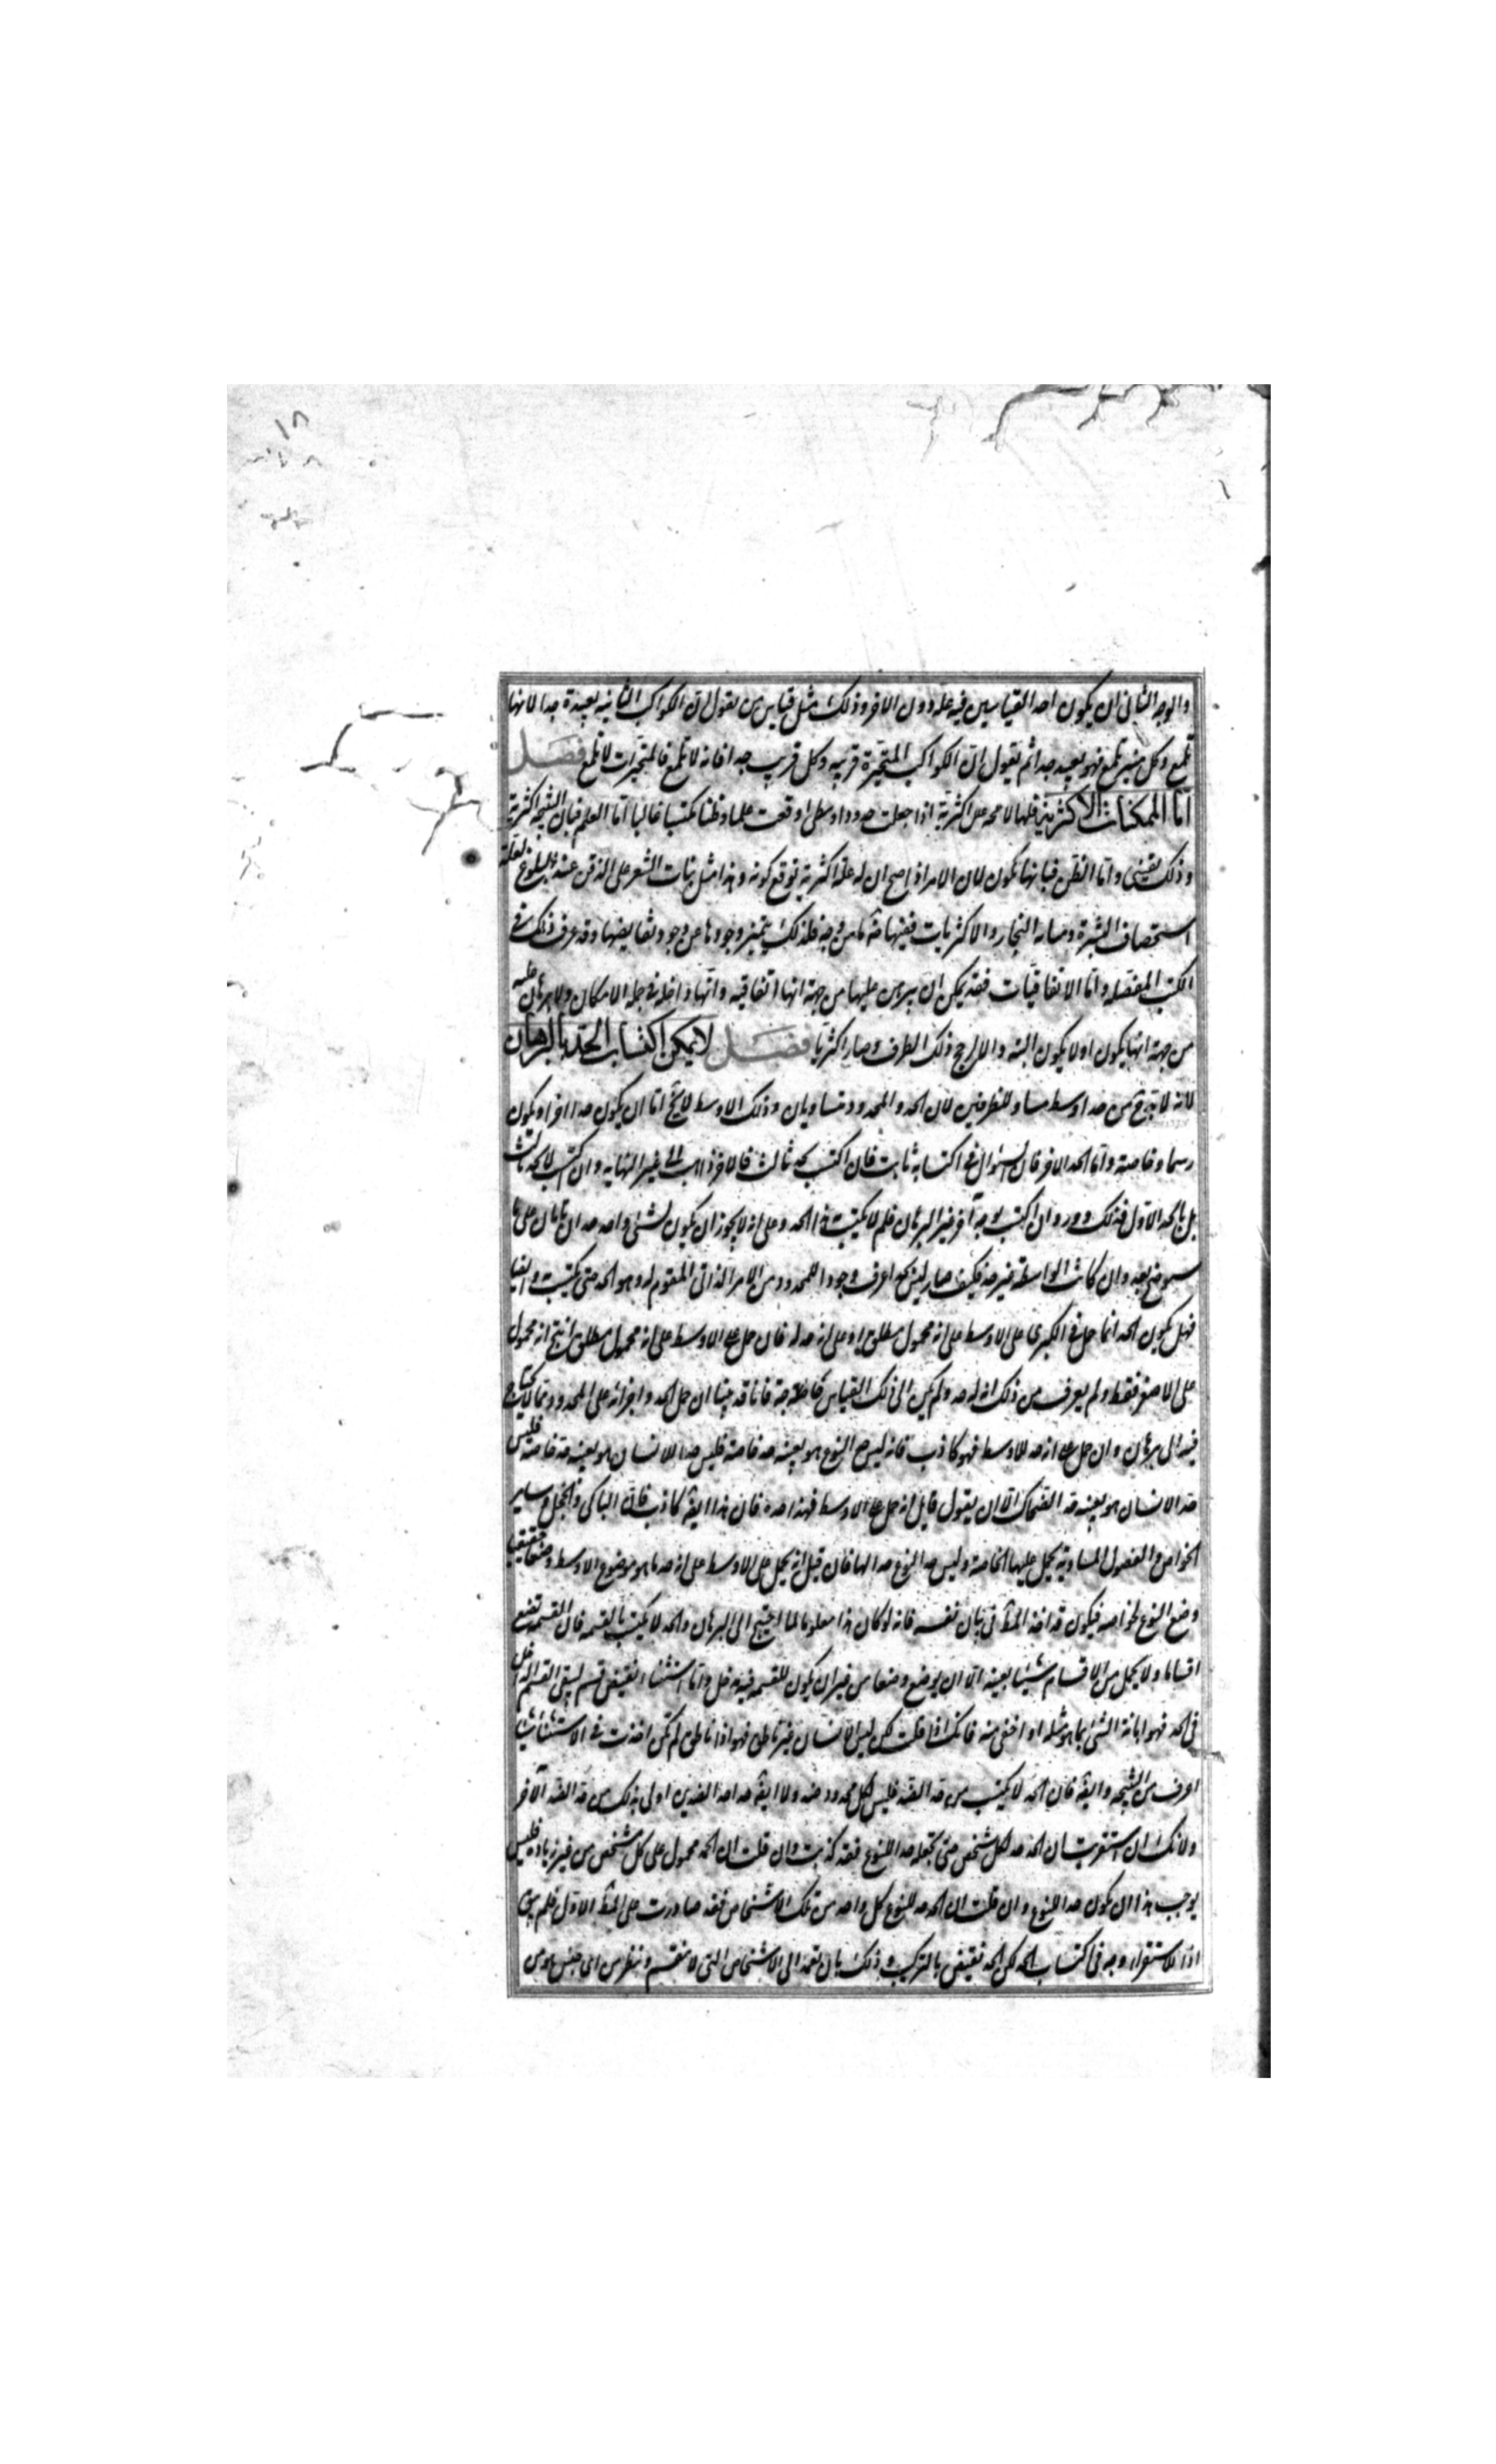 ١٨
والوجه الثانى ان يكون احد القياسين فيه علة دون الاخر وذلك مثل قياس من يقول ان الكواكب الثابتة بعيدة جدا لانها
تلمع وكل منير تلمع فهو بعيد جدا ثم نقول ان الكواكب المتحيرة قريبه وكل قريب جدا فانه لا تلمع فالمتحيرات لا تلمع فصل
اما الممكنات الاكثرية فلها لا محة علل اكثرية اذا جعلت حدودا وسطى اوقعت علما وظنا مكتسبا غالبا اما العلم فبان النتيجه اكثرية
وذلك يقينى واما الظن فبانها تكون لان الامر اذا صح ان له علة اكثرية توقع كونه وهذا مثل نبات الشعر على الذقن عند البلوغ لعلة
استحصاف البشرة ومتانه البخار والاكثريات ففيها ضرورة ما من وجه فلذلك يتميز وجودها عن وجود نقايضها وقد عرف ذلك فى
الكتب المفصله واما الاتفاقيات فقد يمكن ان يبرهن عليها من جهة انها اتفاقيه وانها داخله فى جمله الامكان ولا برهان عليه
من جهة انها يكون اولا يكون البته والا لرجح ذلك الطرف وصار اكثريا فصل لا يمكن اكتساب الحد بالبرهان
لانه لا بد ح من حد اوسط مساو للطرفين لان الحد والمحدود متساويان وذلك الاوسط لا يخ اما ان يكون حدا اخر او يكون
رسما وخاصة واما الحد الاخر فان السؤال فى اكتسابه ثابت فان اكتسب بحد ثالث فالامر ذاهب الى غير النهايه وان اكتسب لا بحد ثالث
بل بالحد الاول فذلك دور وان اكتسب بوجه آخر غير البرهان فلم لا يكتسب به الحد وعلى انه لا يجوز ان يكون لشئ واحد حدان تامان على ما
سيوضح بعد وان كانت الواسطة غير حد فكيف صار ليس بحد اعرف وجودا للمحدود من الامر الذاتى المقوم له وهو الحد حتى يكتسب به وايضا
فهل يكون الحد انما حمل فى الكبرى على الاوسط على انه محمول مطلق او على انه حد له فان حمل على الاوسط على انه محمول مطلق انتج انه محمول
على الاصغر فقط ولم يعرف من ذلك انه له حد ولم يكن الى ذلك القياس حاجة فانا قد بينا ان حمل الحد واجزائه على المحدود مما لا يحتاج
فيه الى برهان وان حمل على انه حد للاوسط فهو كاذب فانه ليس حد النوع هو بعينه حد خاصته فليس حد الانسان هو بعينه حد خاصته فليس
حد الانسان هو بعينه حد الضحاك الا ان يقول قايل انه حمل على الاوسط فهذا حده فان هذا ايضه كاذب فان الباكى والخجل وساير
الخواص والفصول المساوية يحمل عليها الخاصة وليس حد النوع حدا لها فان قيل انه يحمل على الاوسط على انه حد ما هو موضوع الاوسط وضعا حقيقيا
وضع النوع لخواصه فيكون قد اخذ المط فى بيان نفسه فانه لو كان هذا معلوما لما احتيج الى البرهان والحد لا يكتسب بالقسمه فان القسمه تضع
اقساما ولا يحمل من الاقسام شيئا بعينه الا ان يوضع وضعا من غير ان يكون للقسمه فيه مدخل واما استثناء نقيض قسم ليبقى القسم الداخل
فى الحد فهو ابانة الشئ بما هو مثله او اخفى منه فانك اذا قلت لكن ليس الانسان غير ناطق فهو اذا ناطق لم تكن اخذت فى الاستثناء شيئا
اعرف من النتيجه وايضه فان الحد لا يكتسب من حد الضد فليس لكل محدود ضد ولا ايضه حد احد الضدين اولى بذلك من حد الضد الآخر
ولانك ان استقريت ان الحد حد لكل شخص حتى تجعله حد للنوع فقد كذبت وان قلت ان الحد محمول على كل شخص من غير زيادة فليس
يوجب هذا ان يكون حدا للنوع وان قلت ان الحد حد للنوع كل واحد من تلك الاشخاص فقد صادرت على المط الاول فلم يبق
اذا للاستقراء وجه فى اكتساب الحد لكن الحد نقيض بالتركيب وذلك بان نعمد الى الاشخاص التى لا تنقسم وننظر من اى جنس هو من